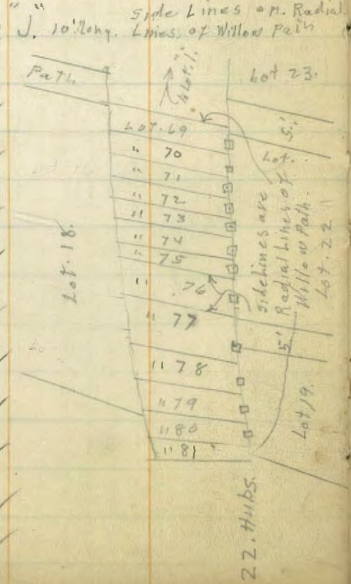 " " side Lines on. Radial
J. 10' long. Lines of Willow Path
Path.
to Lot. 1.
Lot 23.
Lot. 69
5'
" 70
Lot.
" 71
" 72
" 73
" 74
" 75
" 76
" 77
" 78
" 79
" 80
" 81
Lot. 18.
Side Lines are
Radial Lines of
Willow Path.
Lot. 22
5'
Lot 19.
22. Hubs.